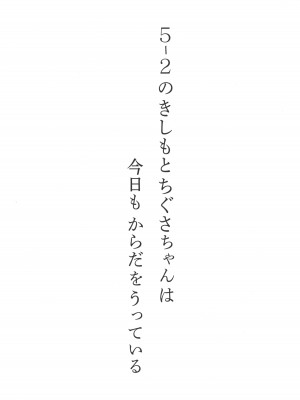 5-2のきしもとちぐさちゃんは
今日もからだをうっている